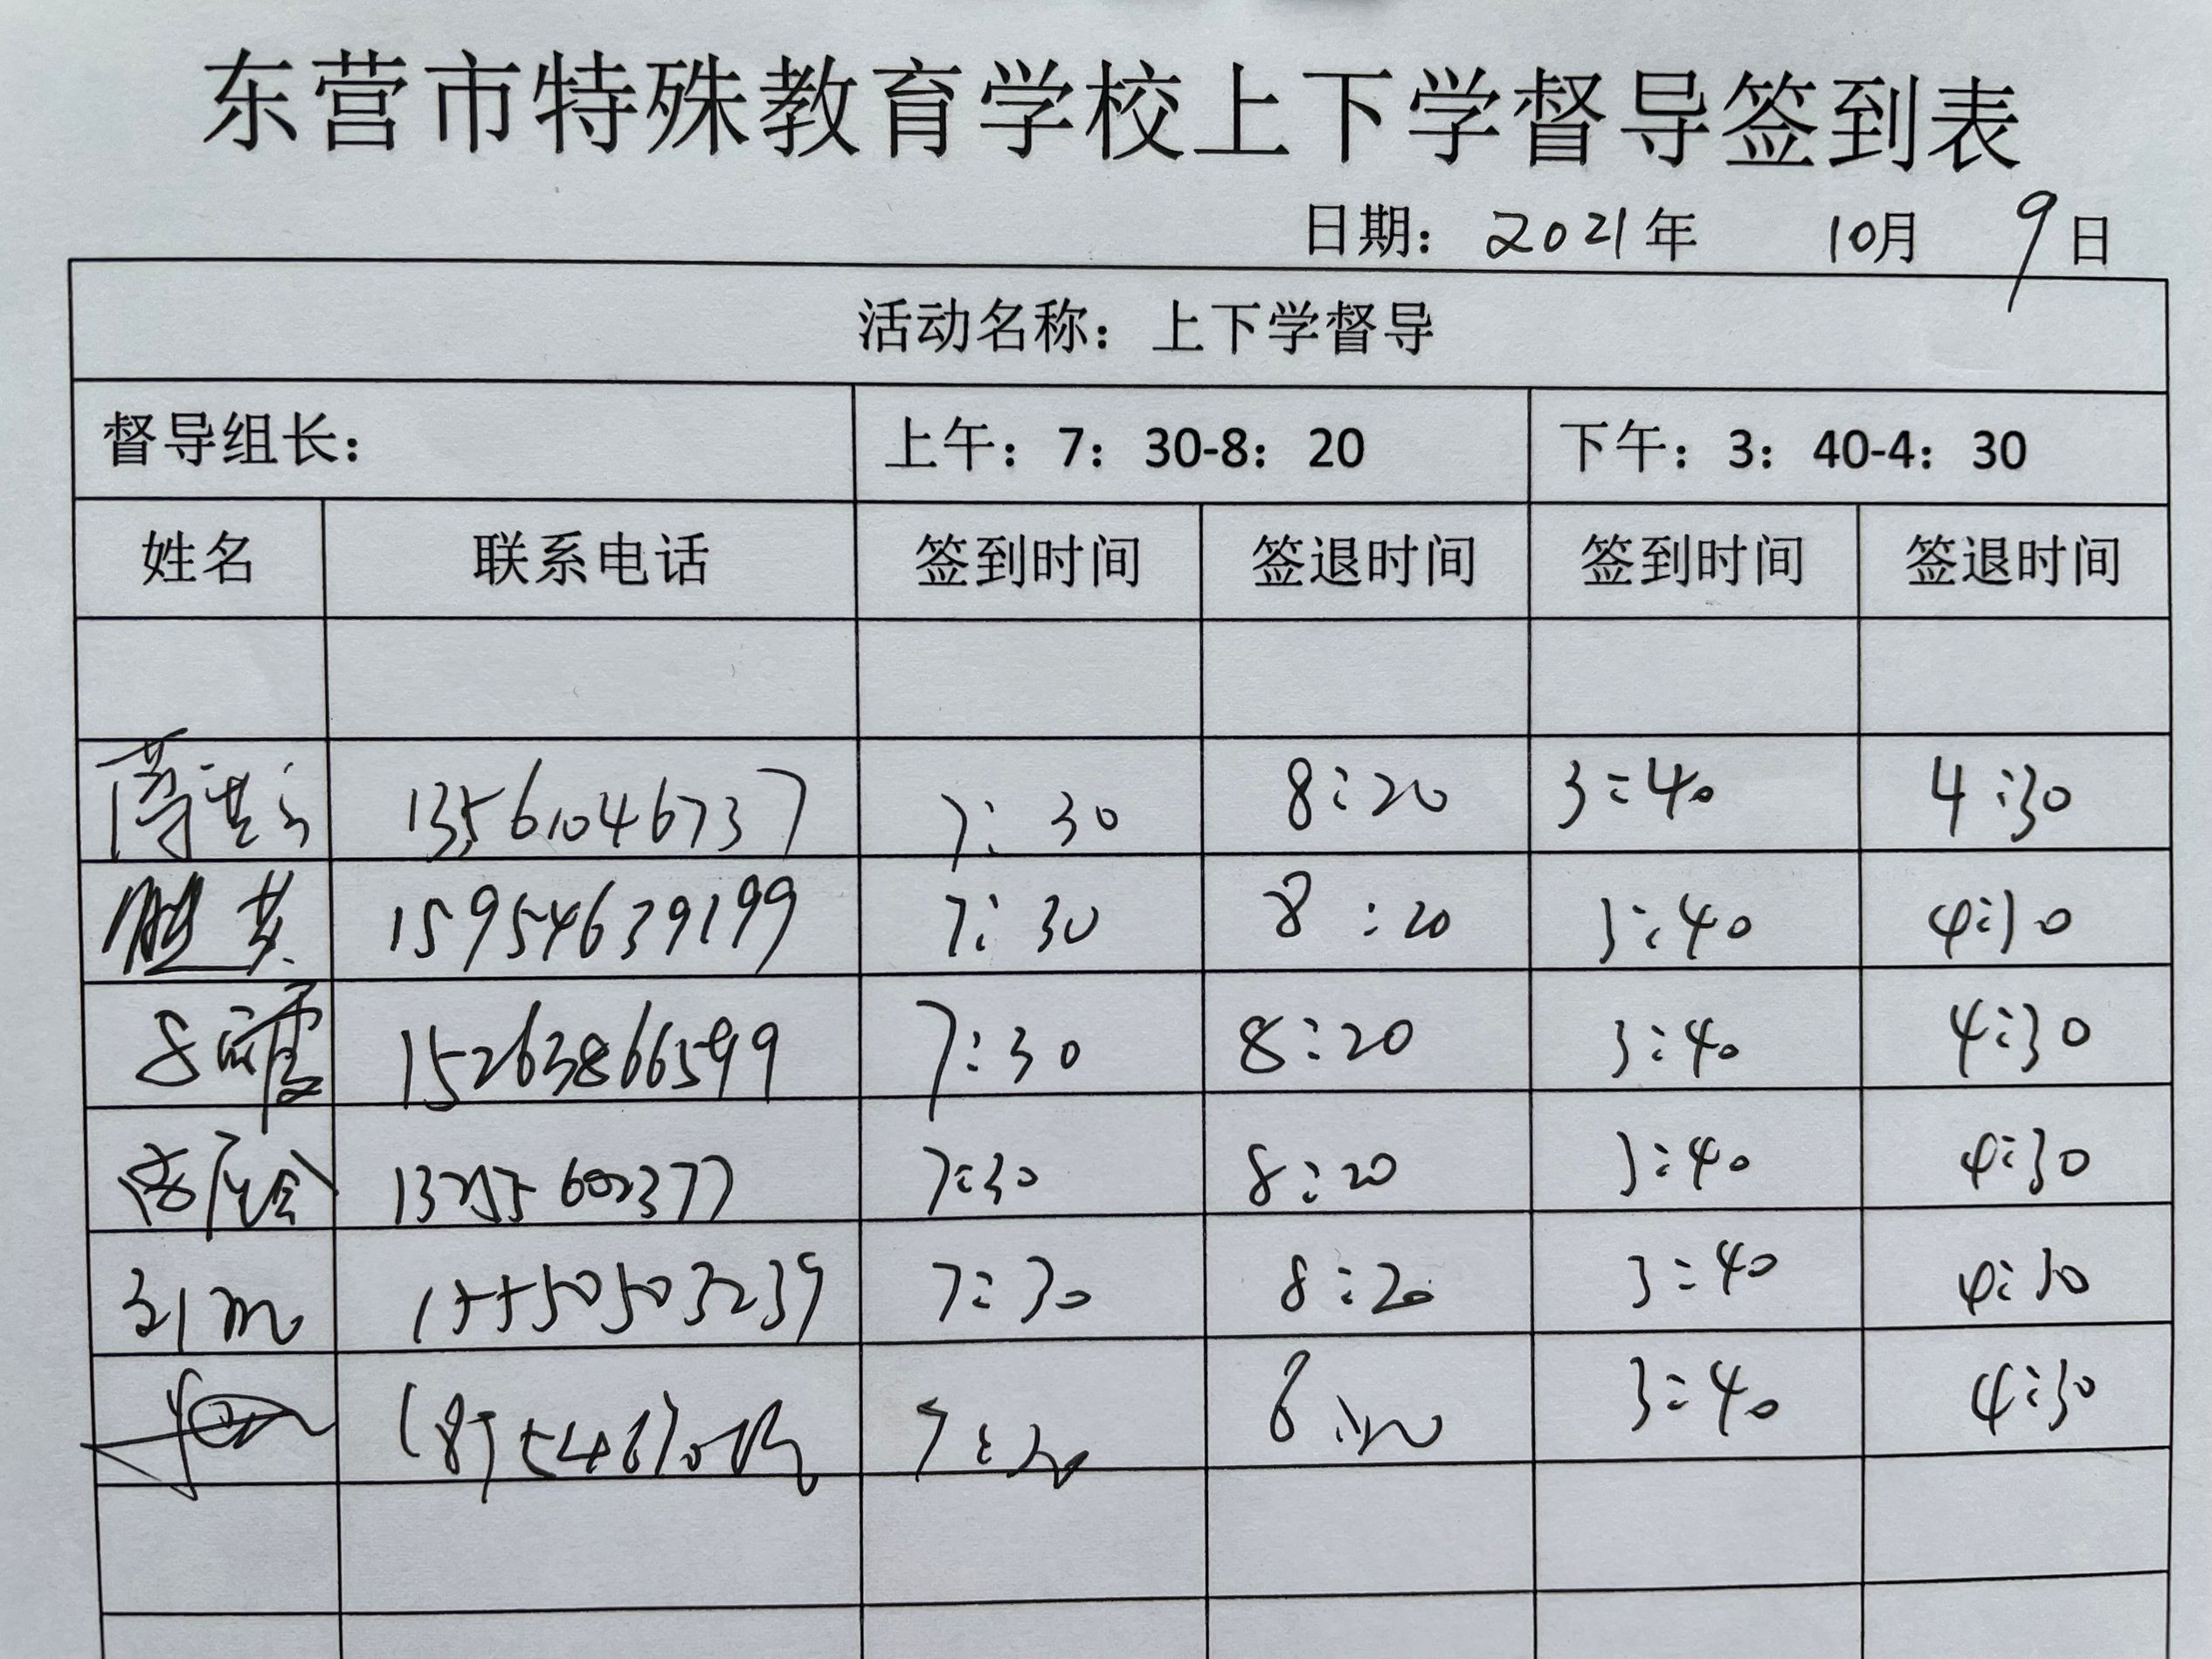 东营市特殊教育学校上下学督导签到表
日期：2021年 10月 9日
活动名称：上下学督导
督导组长： 上午：7：30-8：20 下午：3：40-4：30
姓名 联系电话 签到时间 签退时间 签到时间 签退时间
13561046737 7:30 8:20 3:40 4:30
15954639199 7:30 8:20 3:40 4:30
15263866599 7:30 8:20 3:40 4:30
7:30 8:20 3:40 4:30
15550503239 7:30 8:20 3:40 4:30
3:40 4:30